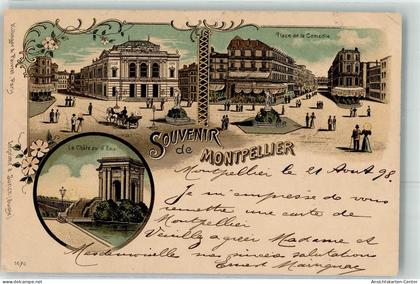 Place de la Comédie
SOUVENIR
de MONTPELLIER
Le Château d'Eau
Montpellier le 21 Août 98
Je m'empresse de vous
remettre une carte de
Montpellier
Veuillez agréer Madame et
Mademoiselle nos sincères salutations
Ernest
Ansichtskarten-Center